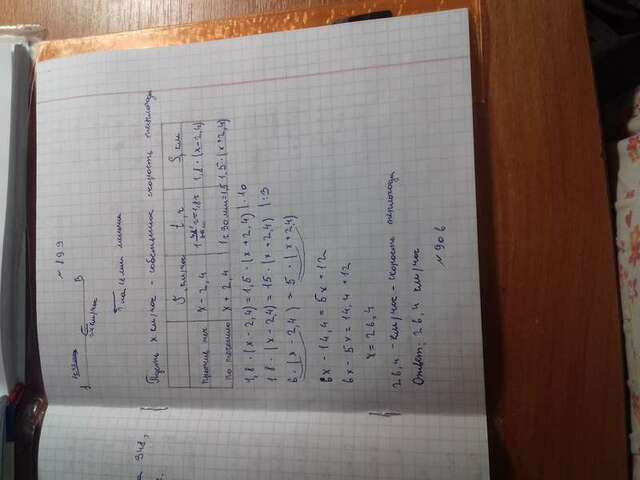 № 199
A
B
Пусть х км/час - собственная скорость теплохода
V, км/час
t, ч
S, км
против теч.
х - 2,4
1,8 · (х - 2,4)
по течению
х + 2,4
1 ч 30 мин = 1,5
1,5 · (х + 2,4)
1,8 · (х - 2,4) = 1,5 · (х + 2,4) | · 10
18 · (х - 2,4) = 15 · (х + 2,4) | : 3
6 · (х - 2,4) = 5 · (х + 2,4)
6х - 14,4 = 5х + 12
6х - 5х = 14,4 + 12
х = 26,4
26,4 - км/час - скорость теплохода
Ответ: 26,4 км/час
№ 906
348,